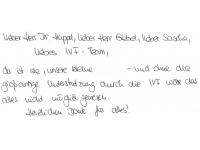 Lieber Herr Dr. Happel, lieber Herr Giebel, lieber Sascha,
liebes IVF - Team,
da ist sie, unsere kleine - und ohne die
großartige Unterstützung durch die IVF wäre das
alles nicht möglich gewesen.
Herzlichen Dank für alles!